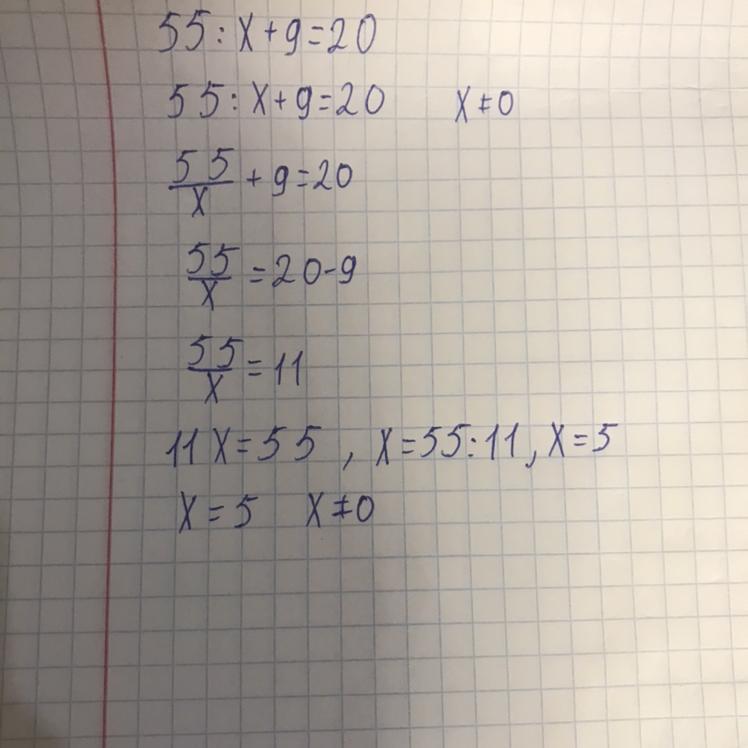 55:x+9=20
55:x+9=20 x≠0
55/x+9=20
55/x=20-9
55/x=11
11x=55, x=55:11, x=5
x=5 x≠0